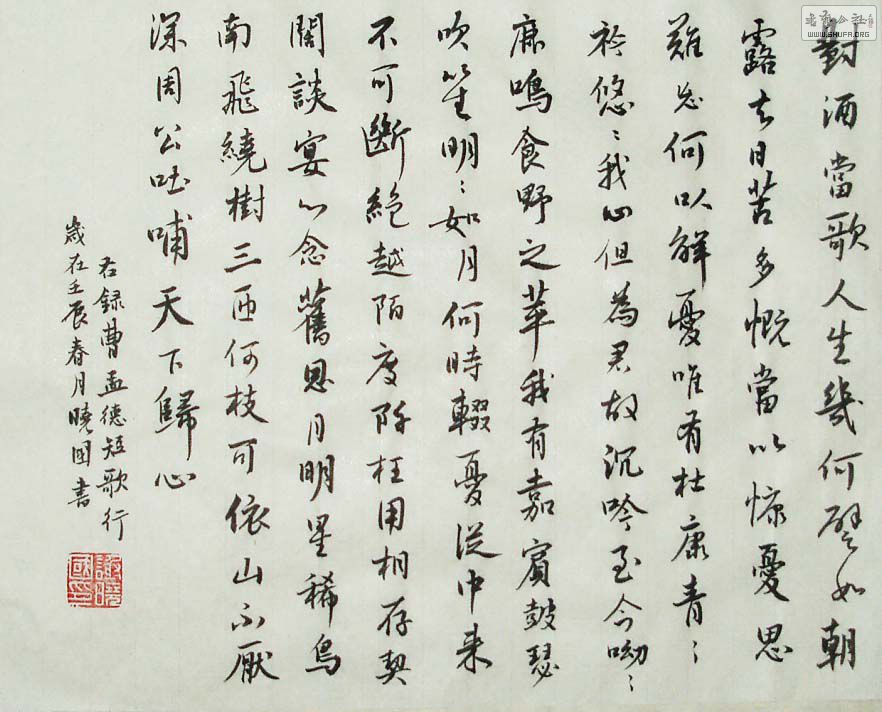 對酒當歌人生幾何譬如朝
露去日苦多慨當以慷憂思
難忘何以解憂唯有杜康青〻
衿悠〻我心但為君故沉吟至今呦〻
鹿鳴食野之苹我有嘉賓鼓瑟
吹笙明〻如月何時輟憂從中来
不可斷絕越陌度阡枉用相存契
闊談宴心念舊恩月明星稀烏
南飛繞樹三匝何枝可依山不厭
深周公吐哺天下歸心
右録曹孟德短歌行
歲在壬辰春月曉國書
WWW.SHUFA.ORG